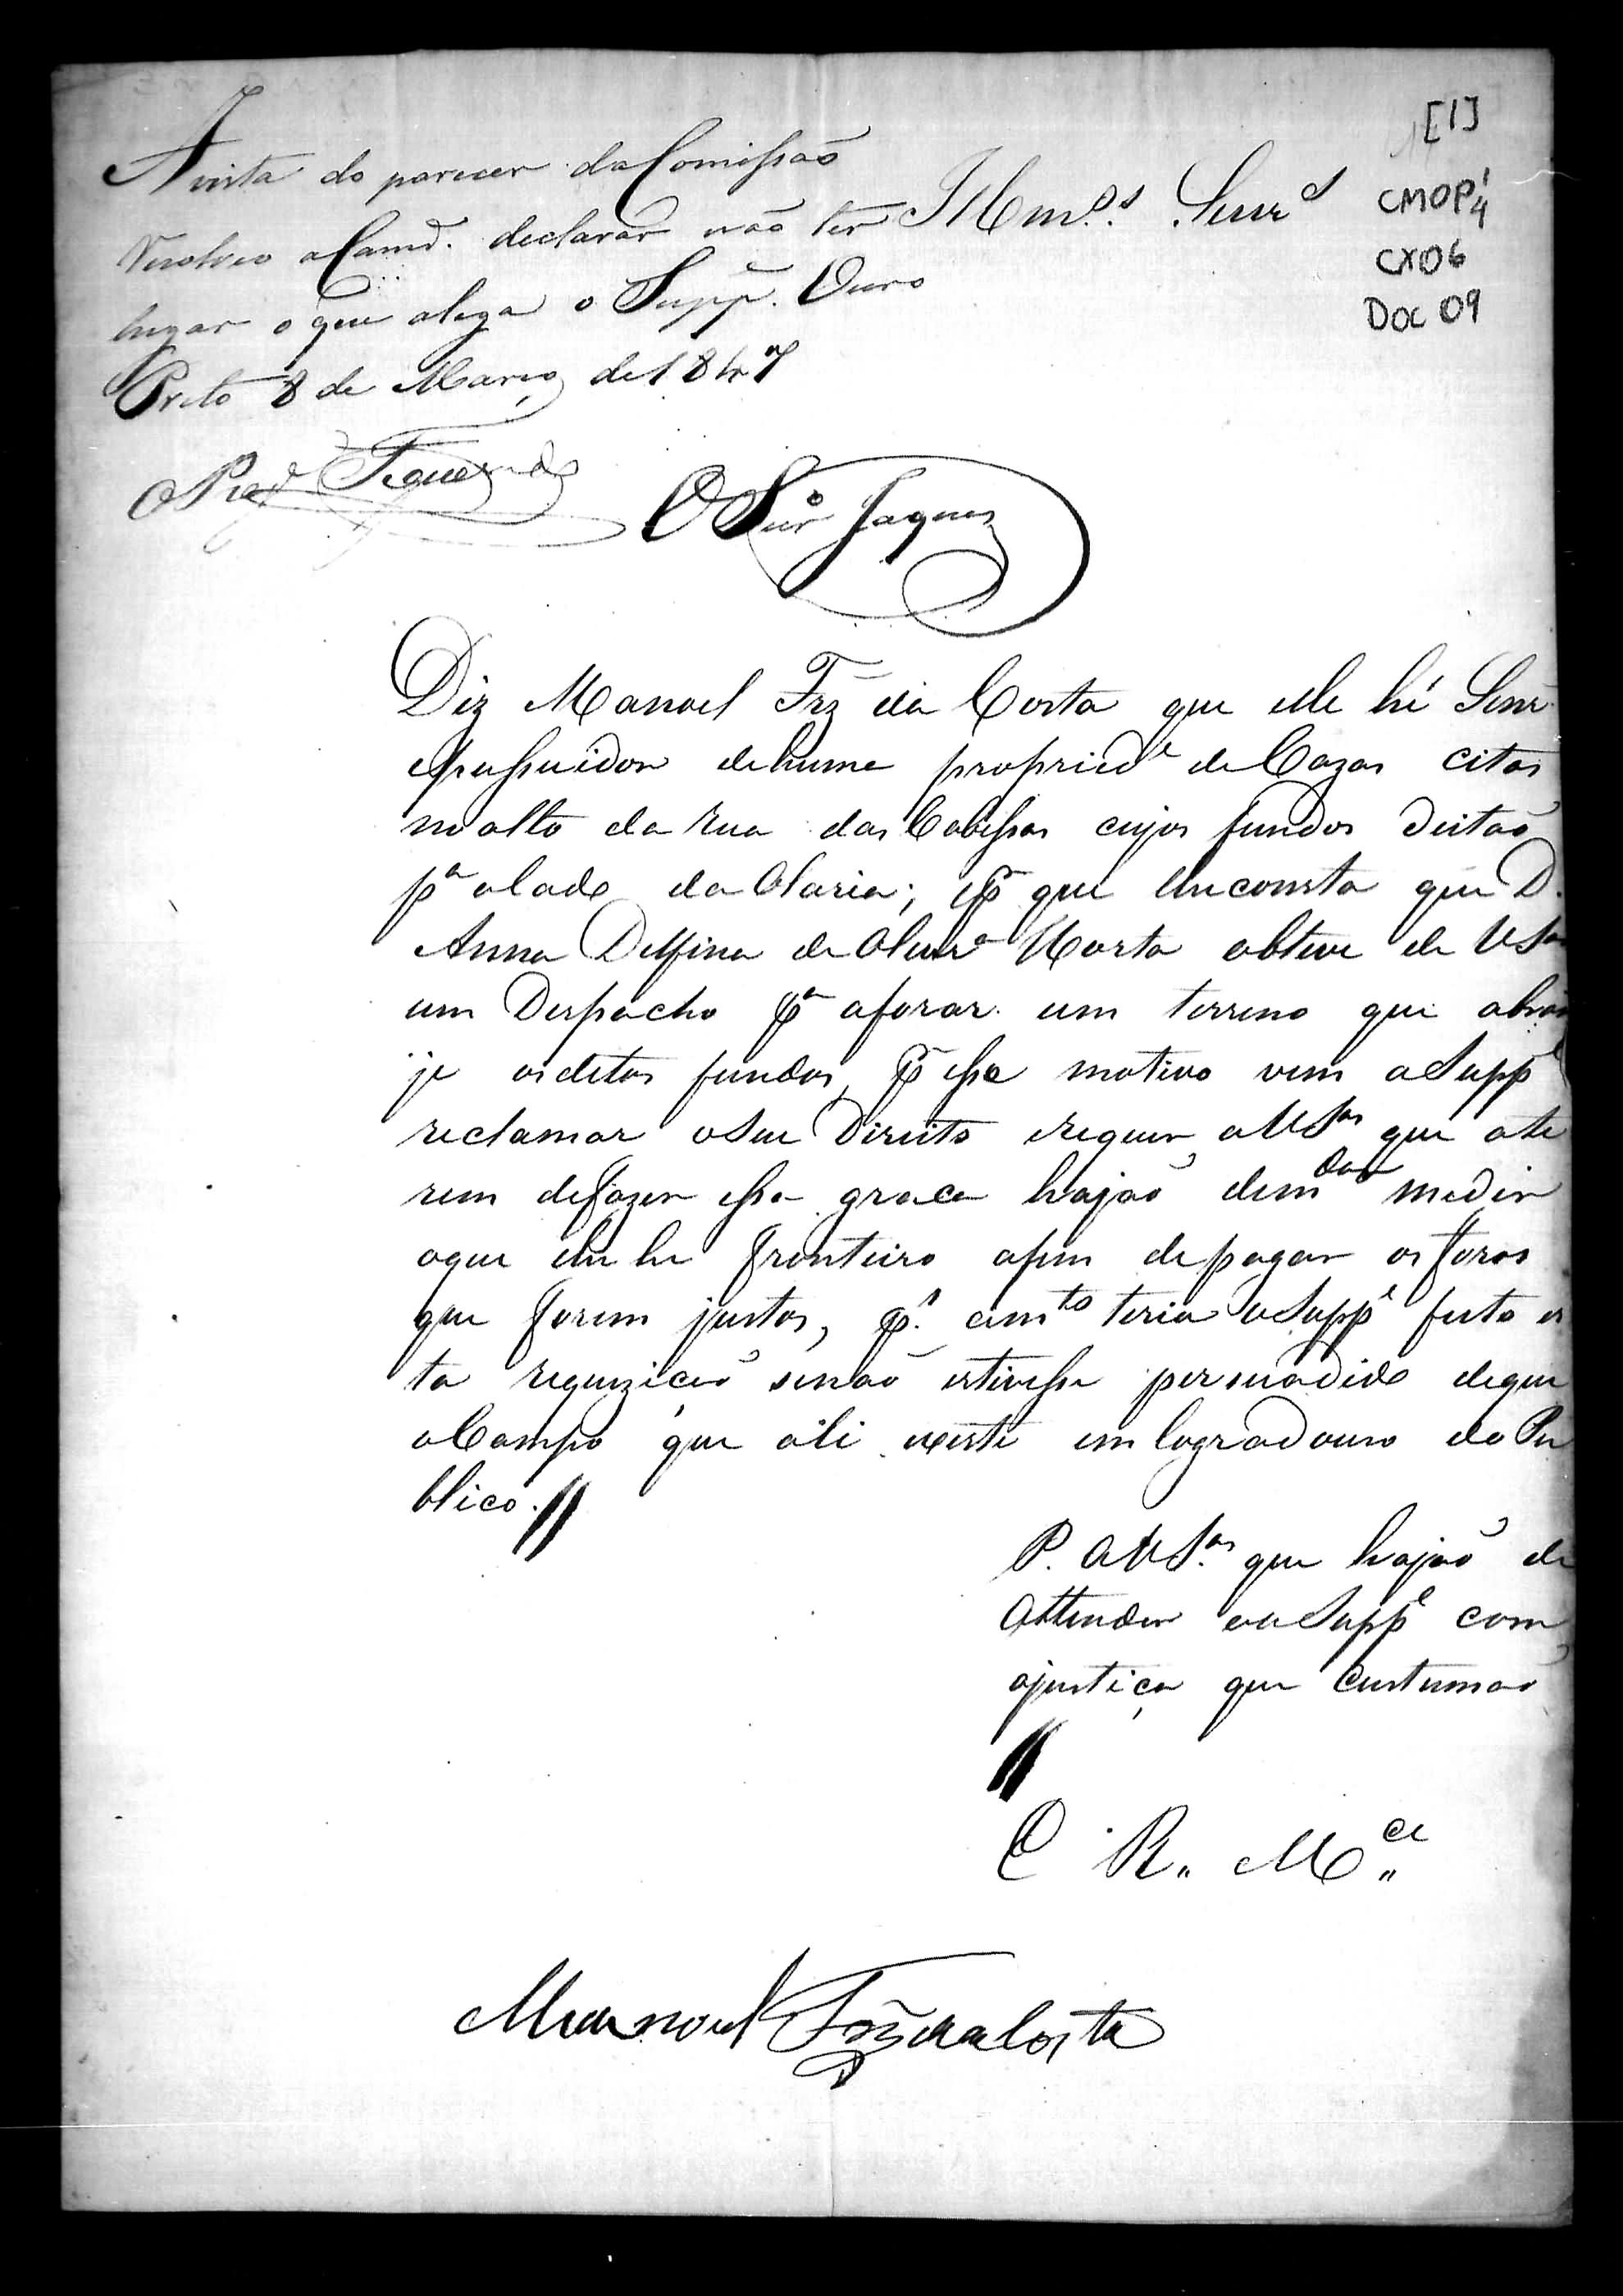 [1]
CMOP 1/4
CX06
DOC 09
A vista do parecer da Comissaõ
resolveo a Camr.ª declarar não ter
lugar o que alega o Supp.e Ouro
Preto 8 de Março de 1847
O Pred.e Figueredo
O Secr.º Jaques
Illmºs. Senr.s
Diz Manoel Frz da Costa que elle hé Senr.
e pussuidor de huma propried.e de Cazas citas
no alto da rua das Cabessas cujos fundos deitaõ
p.ª o lado da Olaria; e p. que lhe consta que D.
Anna Delfina de Oliveir.ª Horta obteve de VS.as
um Despacho p.ª aforar um terreno que abran
je os ditos fundos, p. esse motivo vem o Supp.e
reclamar o seu Direito e requer a VS.as que a te
rem de fazer essa graça hajaõ de m.dar medir
o que lhe he fronteiro afim de pagar os foros
que forem justos, p.s a m.to teria o Supp.e feito es
ta requiziçaõ se naõ estivesse persuadido de que
o Campo que ali existe em logradouro do Pu
blico. //
P. a VS.as que hajaõ de
attender ao Supp.e com
a justiça que custumaõ
//
E R.,, M.ce,,
Manoel Frz da Costa